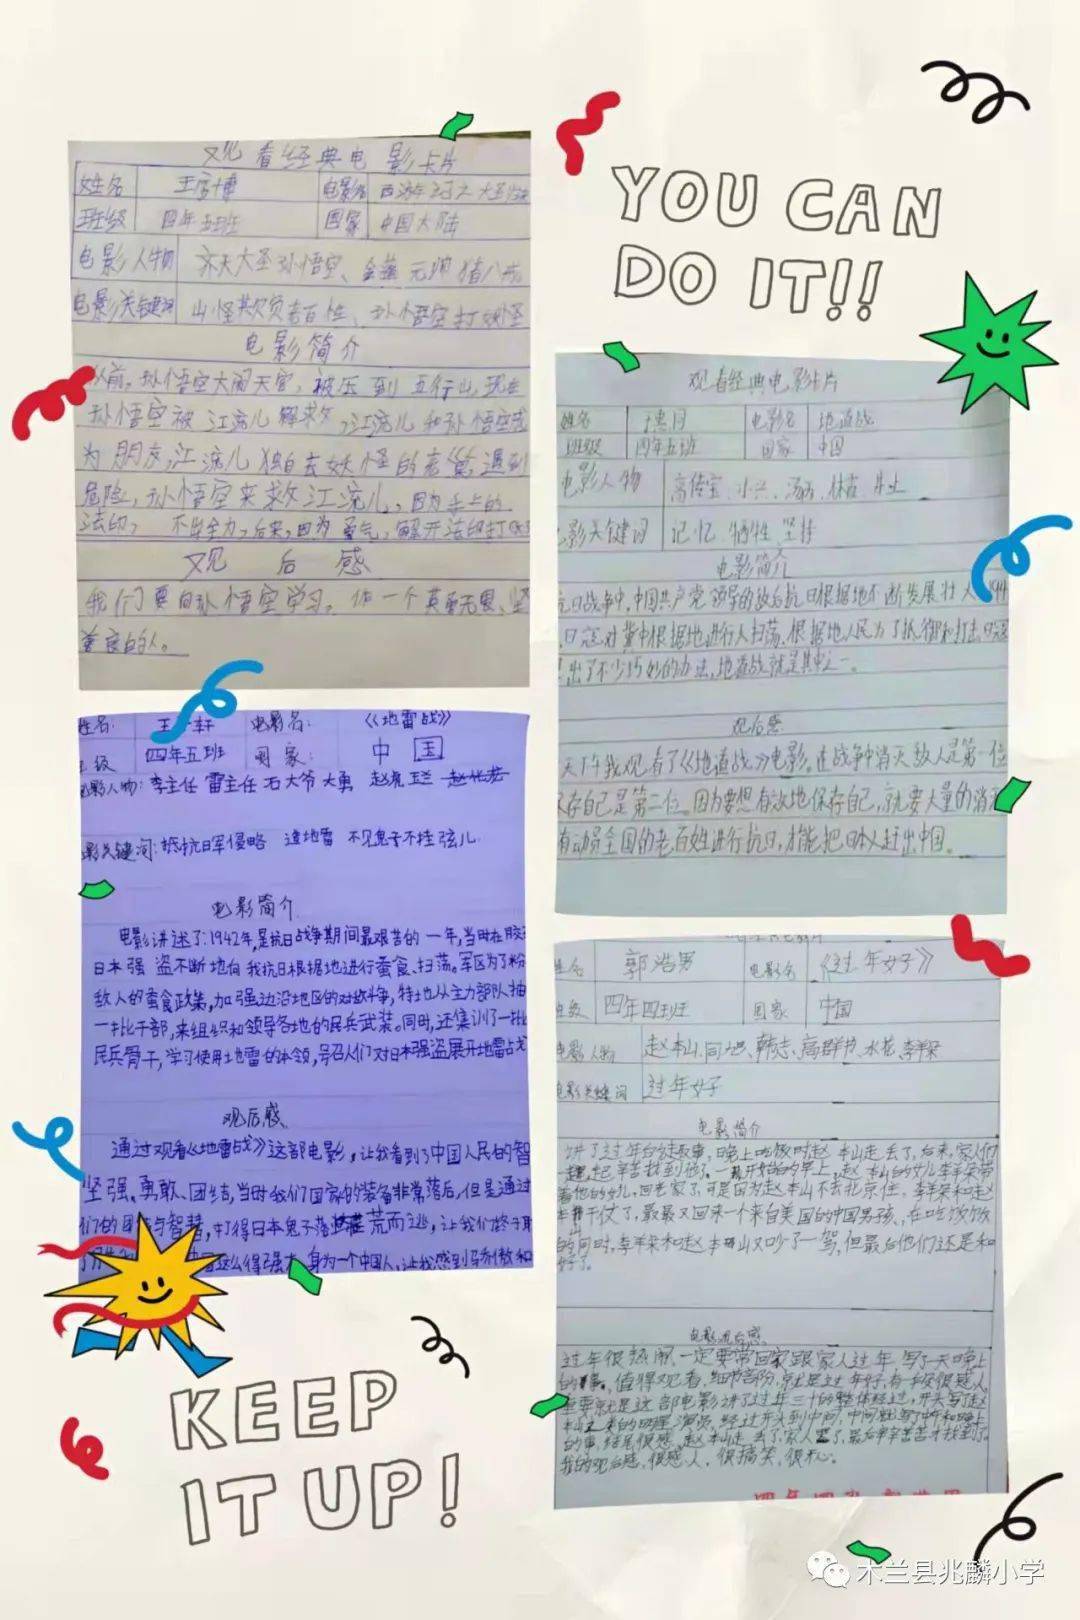 YOU CAN
DO IT!!
观看经典电影卡片
姓名 电影名 西游记之大圣归来
班级 四年五班 国家 中国大陆
电影人物 齐天大圣孙悟空、 猪八戒
电影关键词 山怪欺负老百性、孙悟空打妖怪
电影简介
以前,孙悟空大闹天宫,被压到五行山,现在
孙悟空被江流儿解救,江流儿和孙悟空成
为朋友,江流儿独自去妖怪的老巢,遇到
危险,孙悟空来救江流儿,因为手上的
法印,不出全力,后来,因为勇气,解开法印打
观后感
我们要向孙悟空学习。做一个英勇无畏、坚
善良的人。
观看经典电影卡片
姓名 电影名 地道战
班级 四年五班 国家 中国
电影人物 高传宝、小兴、汤丙、林霞、牛
电影关键词 记忆、牺牲、坚持
电影简介
抗日战争中,中国共产党领导的敌后抗日根据地不断发展壮大
日寇对冀中根据地进行大扫荡,根据地人民为了抵御和打击日寇
出了不少巧妙的办法,地道战就是其中之一。
观后感
天下午我观看了《地道战》电影。在战争中消灭敌人是第一位
保存自己是第二位。因为要想有效地保存自己,就要大量的消
有动员全国的老百姓进行抗日,才能把日本人赶出中国。
姓名: 电影名: 《地雷战》
级 四年五班 国家: 中国
电影人物: 李主任 雷主任 石大爷 大勇 赵虎 玉兰
电影关键词: 抵抗日军侵略 造地雷 不见鬼子不挂弦儿
电影简介
电影讲述了:1942年,是抗日战争期间最艰苦的一年,当时在胶
日本强盗不断地向我抗日根据地进行蚕食、扫荡。军区为了粉
敌人的蚕食政策,加强边沿地区的对敌斗争,特地从主力部队抽
一批干部,来组织和领导各地的民兵武装。同时,还集训了一批
民兵骨干,学习使用地雷的本领,号召人们对日本强盗展开地雷战
观后感
通过观看《地雷战》这部电影,让我看到了中国人民的智
坚强、勇敢、团结,当时我们国家的装备非常落后,但是通过
们的团结与智慧,打得日本鬼子落荒而逃,让我们终于取
这么得强大,身为一个中国人,让我感到骄傲和
姓名 郭浩男 电影名 《过年好》
班级 四年四班 国家 中国
电影人物 赵本山、闫妮、韩志、高群书、水花、李羊朵
电影关键词 过年好
电影简介
讲了过年的的趣事,晚上吃饭时赵本山走丢了,后来,家人们
一起辛苦找到他了。一开始的早上,赵本山的女儿李羊朵带
着他的女儿,回老家了,可是因为赵本山不去北京住,李羊朵和赵
本山干仗了,最最又回来一个来自美国的中国男孩、在吃饭饭
的同时,李羊朵和赵本山又吵了一驾,但最后他们还是和
好了。
电影观后感
过年很热闹,一定要带回家跟家人过年,写了一天晚上
的事,值得观看,细节部份,就是过年好,有一段很感人
主要就是这部电影讲了过年三十的整体经过,开头写了赵
本山 的明星演员,经过开头到中间,中间就写了中午和晚上
的事,结尾很感,赵本山走丢了,家人 了,最后辛辛苦苦才找到了
我的观后感,很感人,很搞笑,很开心。
KEEP
IT UP!
木兰县兆麟小学